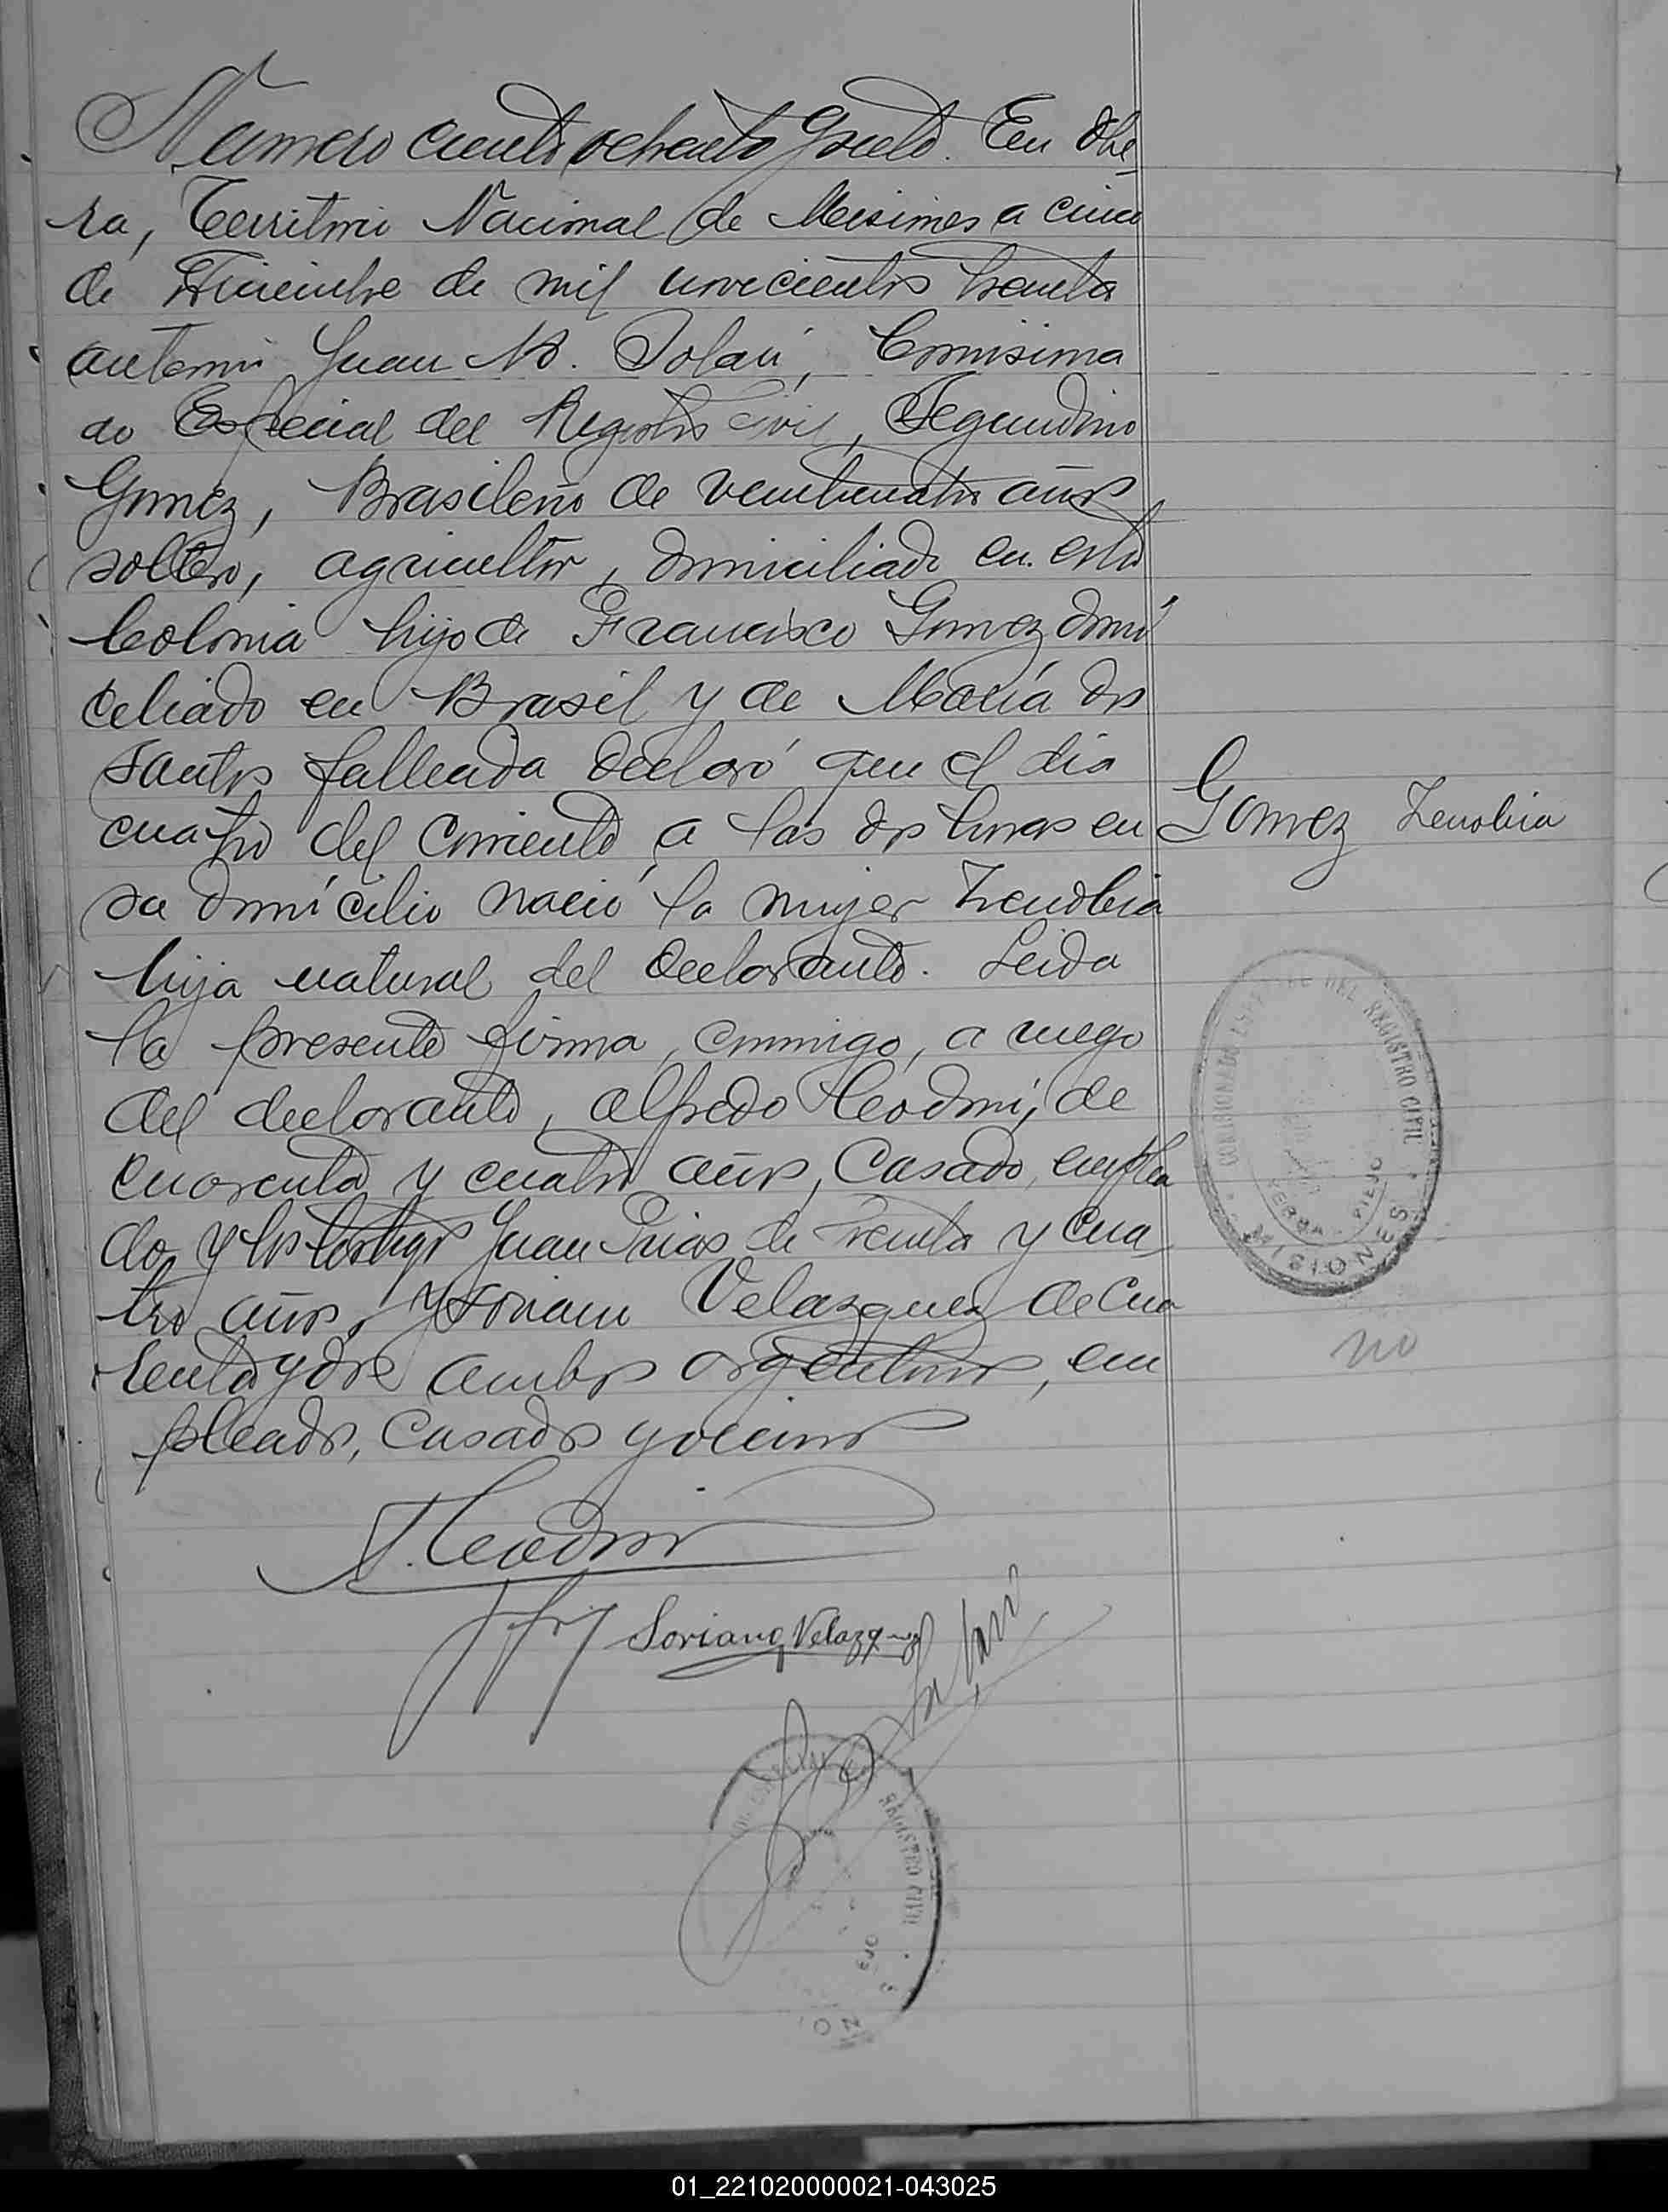 Numero ciento ochenta y siete. En Obe-
ra, Territorio Nacional de Misiones a cinco
de Diciembre de mil novecientos treinta
ante mi Juan B. Solari, Comisiona
do Especial del Registro Civil, Segundino
Gomez, Brasileño de veinticuatro años
soltero, agricultor, domiciliado en esta
Colonia hijo de Francisco Gomez domi
ciliado en Brasil y de María dos
Santos fallecida declaró que el dia
cuatro del corriente, a las dos horas en
su domícilio nació la mujer Zenobia
hija natural del declarante. Leida
la presente firma, conmigo, a ruego
del declarante, Alfredo de
cuarenta y cuatro años, casado, emplea
do, y los testigos Juan de treinta y cua
tro años, y Soriano Velazquez de cua
renta y dos ambos argentinos, em
pleados, casados y vecinos
Soriano Velazquez
Gomez Zenobia
COMISIONADO ESPECIAL DEL REGISTRO CIVIL
YERBAL VIEJO
MISIONES
no
REGISTRO CIVIL
01_221020000021-043025